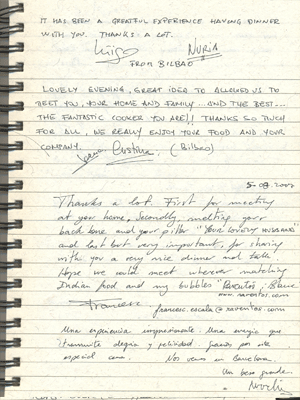 IT HAS BEEN A GREATFUL EXPERIENCE HAVING DINNER
WITH YOU. THANKS A LOT.
Iñigo NURIA
FROM BILBAO
LOVELY EVENING, GREAT IDEA TO ALLOWED US TO
MEET YOU, YOUR HOME AND FAMILY... AND THE BEST...
THE FANTASTIC COOKER YOU ARE!! THANKS SO MUCH
FOR ALL, WE REALLY ENJOY YOUR FOOD AND YOUR
COMPANY.
Cristina (Bilbao)
Thanks a lot. First for meeting
at your home, Secondly, melting your
back bone and your pillar "Your loving HUSBAND"
and last but very important, for sharing
with you a very nice dinner and talk.
Hope we could meet wherever matching
Indian food and my bubbles "RAVENTÓS i Blanc
www.raventos.com
Francesc
francesc.escala@raventos.com
Una experiencia impresionante. Una energia que
transmite alegria y felicidad. Gracias por esta
especial cena. Nos vemos en Barcelona.
Un beso grande.